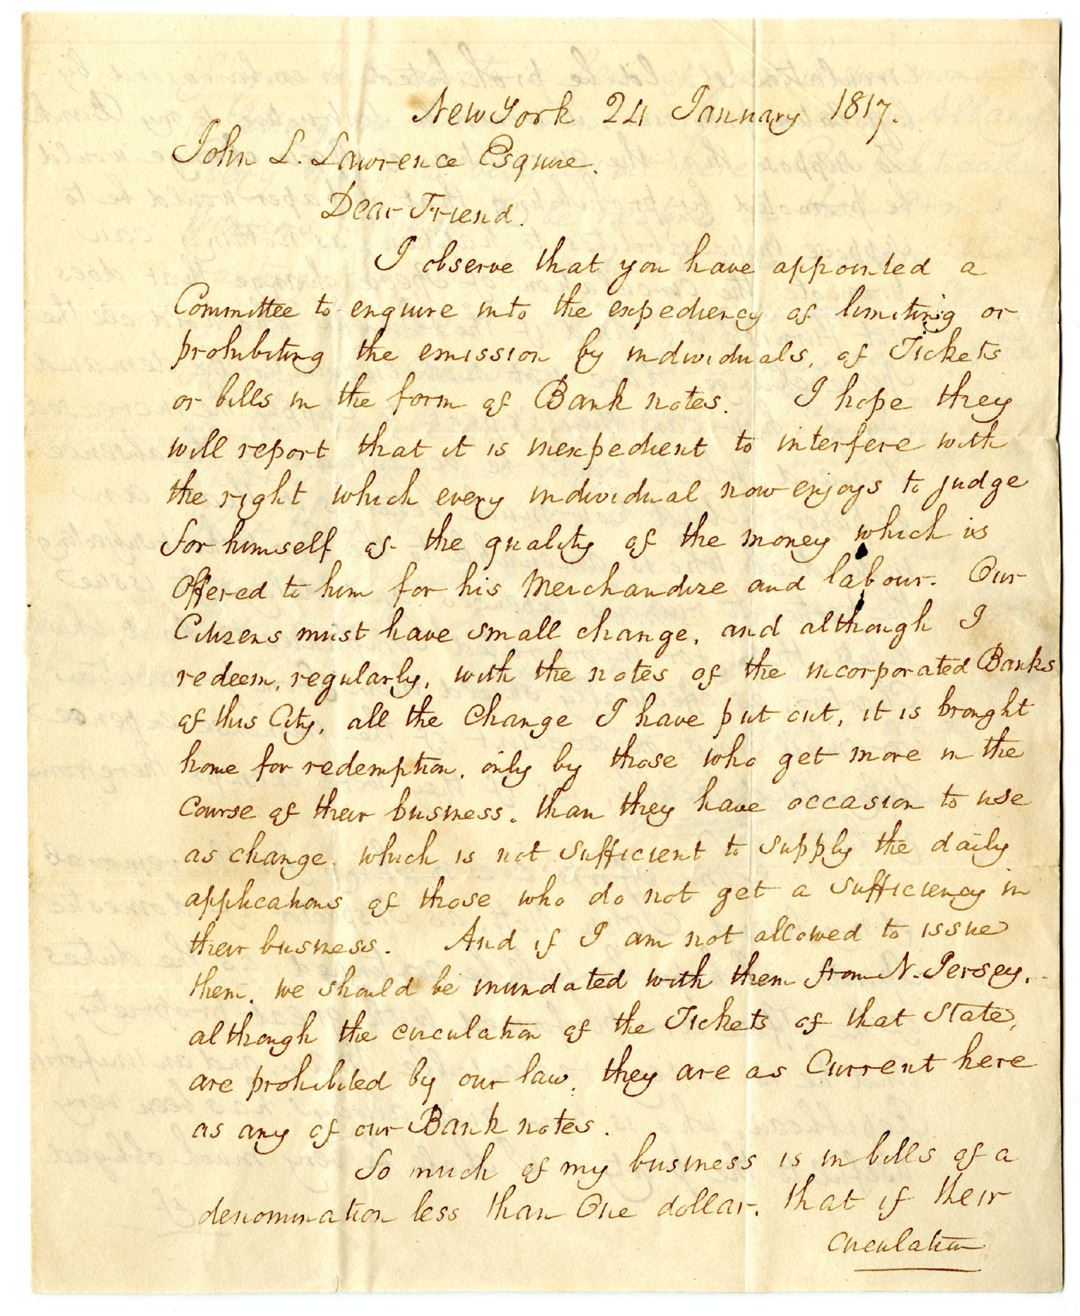 New York 24 January 1817.
John L. Lawrence Esquire.
Dear Friend.
I observe that you have appointed a
Committee to enquire into the expediency of limiting or
prohibiting the emission by individuals, of Tickets
or bills in the form of Bank notes. I hope they
will report that it is inexpedient to interfere with
the right which every individual now enjoys to judge
for himself of the quality of the money which is
Offered to him for his Merchandize and labour. Our
Citizens must have small change, and although I
redeem, regularly, with the notes of the incorporated Banks
of this City, all the Change I have put out, it is brought
home for redemption, only by those who get more in the
Course of their business, than they have occasion to use
as change, which is not sufficient to supply the daily
applications of those who do not get a sufficiency in
their business. And if I am not allowed to issue
them, we should be inundated with them from N. Jersey,
although the circulation of the Tickets of that State,
are prohibited by our law, they are as Current here
as any of our Bank notes.
So much of my business is in bills of a
denomination less than One dollar, that if their
circulation